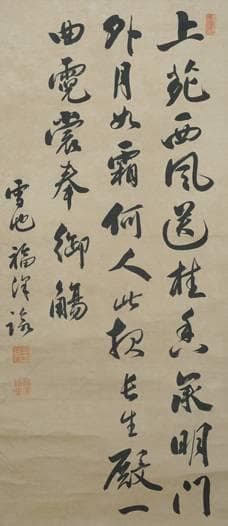 上苑西風送桂香承明門
外月如霜何人此夜長生殿一
曲霓裳奉御觴
雪池福澤諭